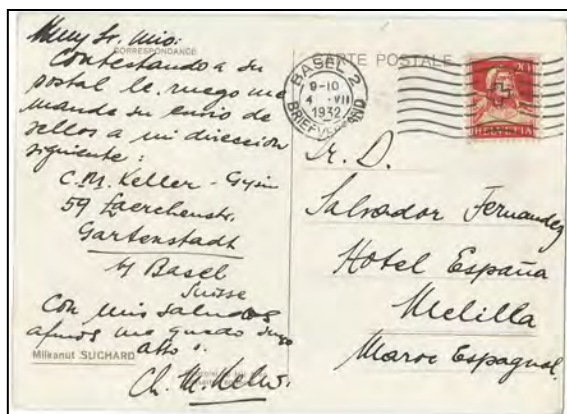 Muy Sr. mio:
CORRESPONDANCE
Contestando a su
postal le ruego me
mande su envio de
sellos a mi dirección
siguiente:
C. M. Keller - Gysin
59 Laerchenstr.
Gartenstadt
b/ Basel
Suisse
Con mis saludos
afmos me quedo suyo
atto.
Milkanut SUCHARD
Ch. M. Keller.
CARTE POSTALE
BASEL 2
9-10
4. VII
1932
BRIEFVERSAND
20
HELVETIA
Sr. D.
Salvador Fernandez
Hotel España
Melilla
Maroc Espagnol.